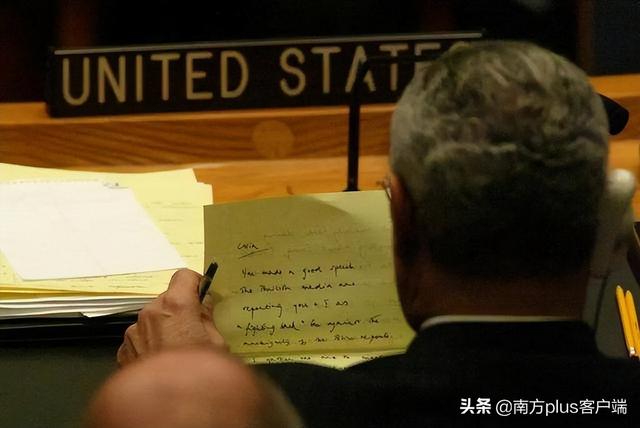 UNITED STATE
Colin
You made a good speech.
The British media are
reporting you & I as
"fighting back" against the
of the Blix reports.
I gather
头条 @南方plus客户端